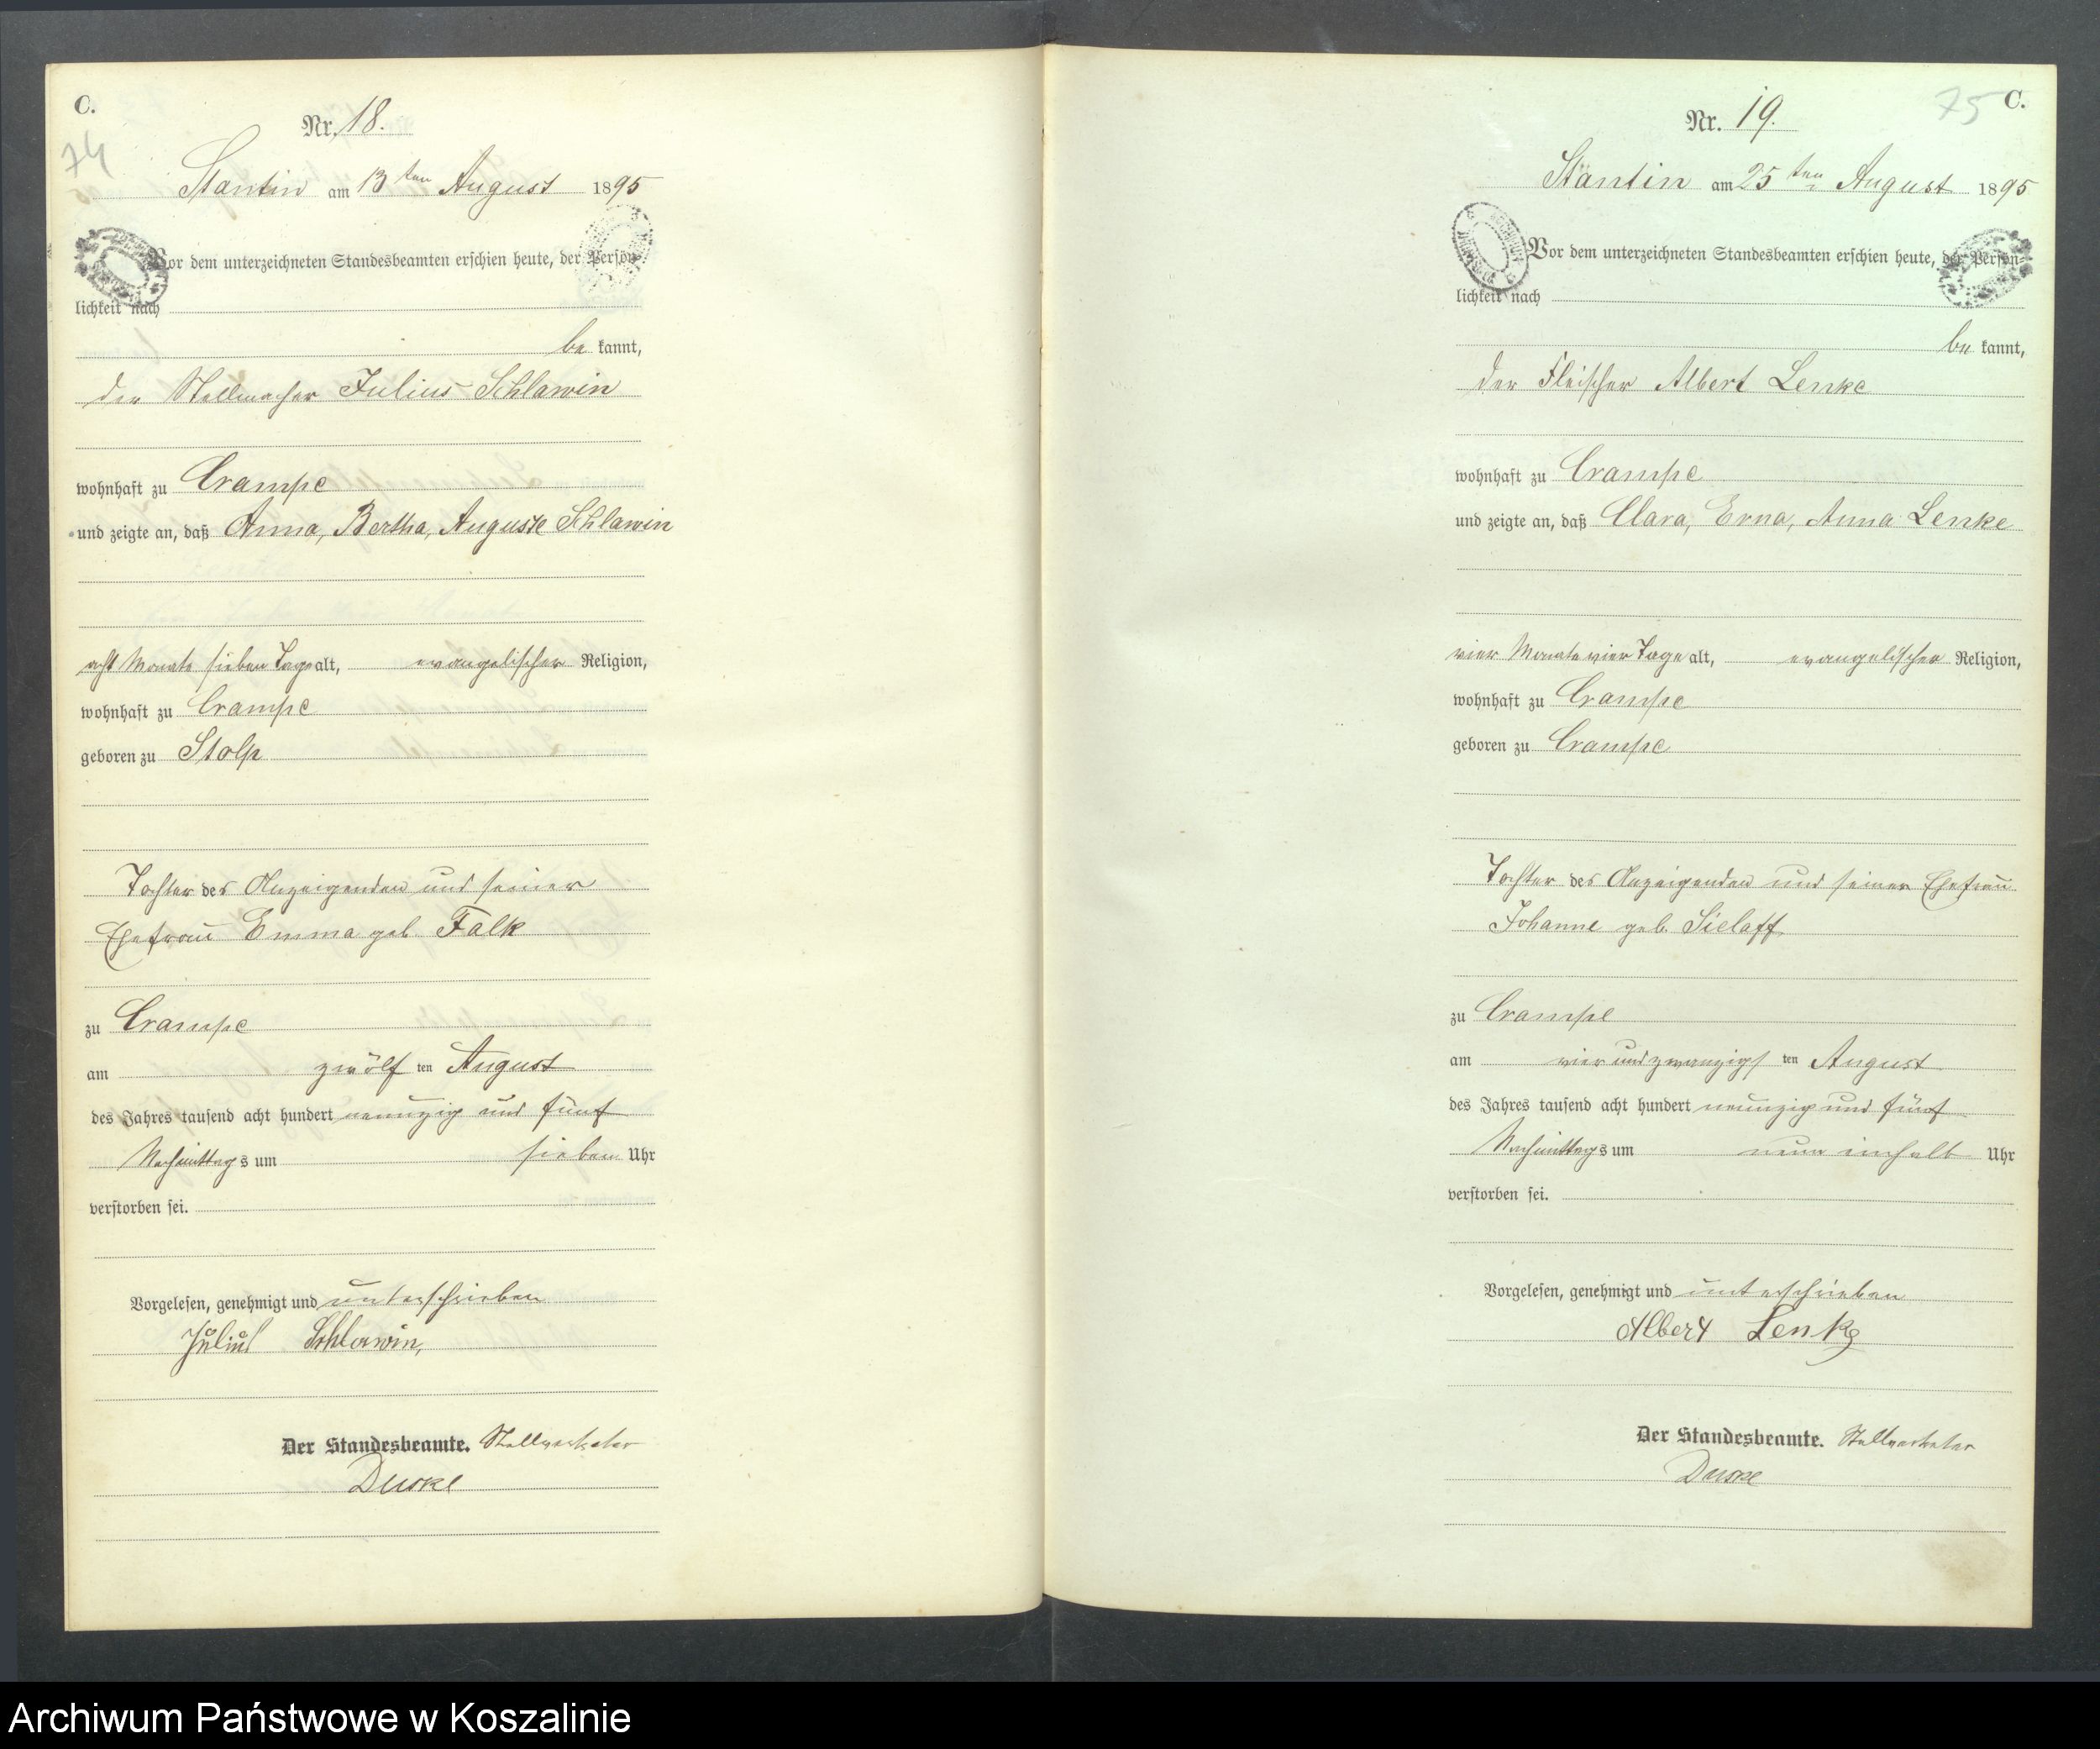 C.
74
Nr. 18.
Stantin am 13ten August 1895
Vor dem unterzeichneten Standesbeamten erschien heute, der Persön-
lichkeit nach
be kannt,
der Stellmacher Julius Schlawin
wohnhaft zu Crampe
und zeigte an, daß Anna, Bertha, Auguste Schlawin
acht Monate sieben Tage alt, evangelischer Religion,
wohnhaft zu Crampe
geboren zu Stolp
Tochter des Anzeigenden und seiner
Ehefrau Emma geb. Falk
zu Crampe
am zwölf ten August
des Jahres tausend acht hundert neunzig und fünf
Nachmittags um sieben Uhr
verstorben sei.
Vorgelesen, genehmigt und unterschrieben
Julius Schlawin,
Der Standesbeamte. Stellvertreter
C.
75
Nr. 19.
Stäntin am 25ten August 1895
Vor dem unterzeichneten Standesbeamten erschien heute, der Persön-
lichkeit nach
be kannt,
der Fleischer Albert Lenke
wohnhaft zu Crampe
und zeigte an, daß Clara, Erna, Anna Lenke
vier Monate vier Tage alt, evangelischer Religion,
wohnhaft zu Crampe
geboren zu Crampe
Tochter des Anzeigenden und seiner Ehefrau
Johanne geb. Sielaff
zu Crampe
am vier und zwanzigs ten August
des Jahres tausend acht hundert neunzig und fünf
Nachmittags um neun einhalb Uhr
verstorben sei.
Vorgelesen, genehmigt und unterschrieben
Albert Lenke
Der Standesbeamte. Stellvertreter
Archiwum Państwowe w Koszalinie